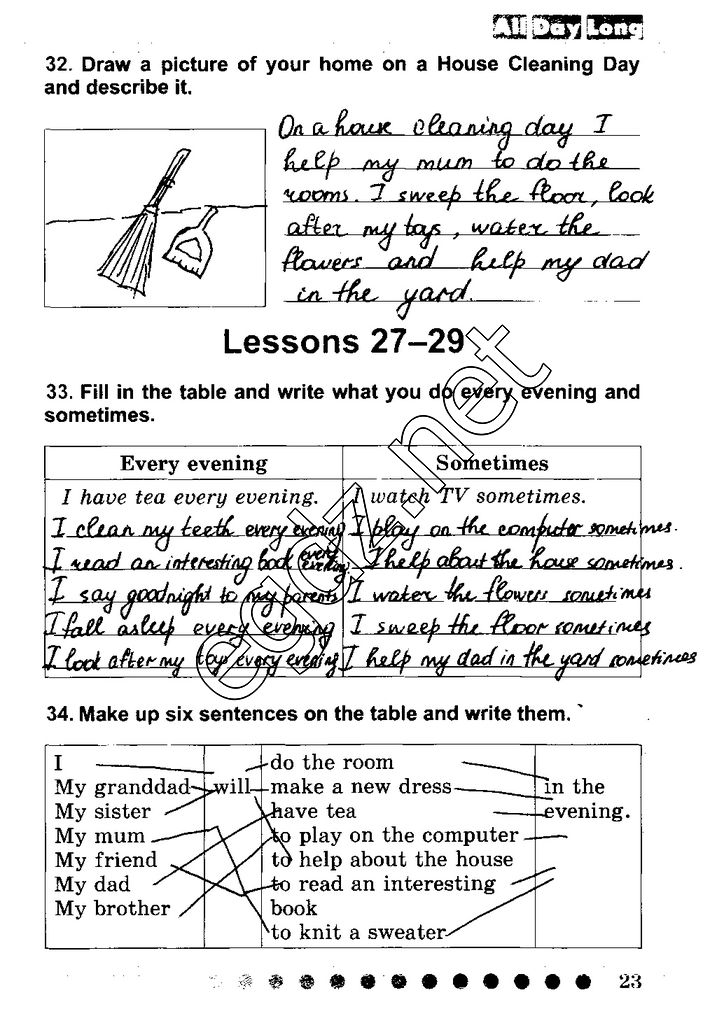 All Day Long
32. Draw a picture of your home on a House Cleaning Day
and describe it.
On a house cleaning day I
help my mum to do the
rooms. I sweep the floor, look
after my toys, water the
flowers and help my dad
in the yard.
Lessons 27–29
33. Fill in the table and write what you do every evening and
sometimes.
Every evening Sometimes
I have tea every evening. I watch TV sometimes.
I clean my teeth every evening I play on the computer sometimes.
I read an interesting book every evening I help about the house sometimes.
I say goodnight to my parents I water the flowers sometimes
I fall asleep every evening I sweep the floor sometimes
I look after my toys every evening I help my dad in the yard sometimes
34. Make up six sentences on the table and write them.
I do the room
My granddad will make a new dress in the
My sister have tea evening.
My mum to play on the computer
My friend to help about the house
My dad to read an interesting
My brother book
to knit a sweater
23
egdz.net